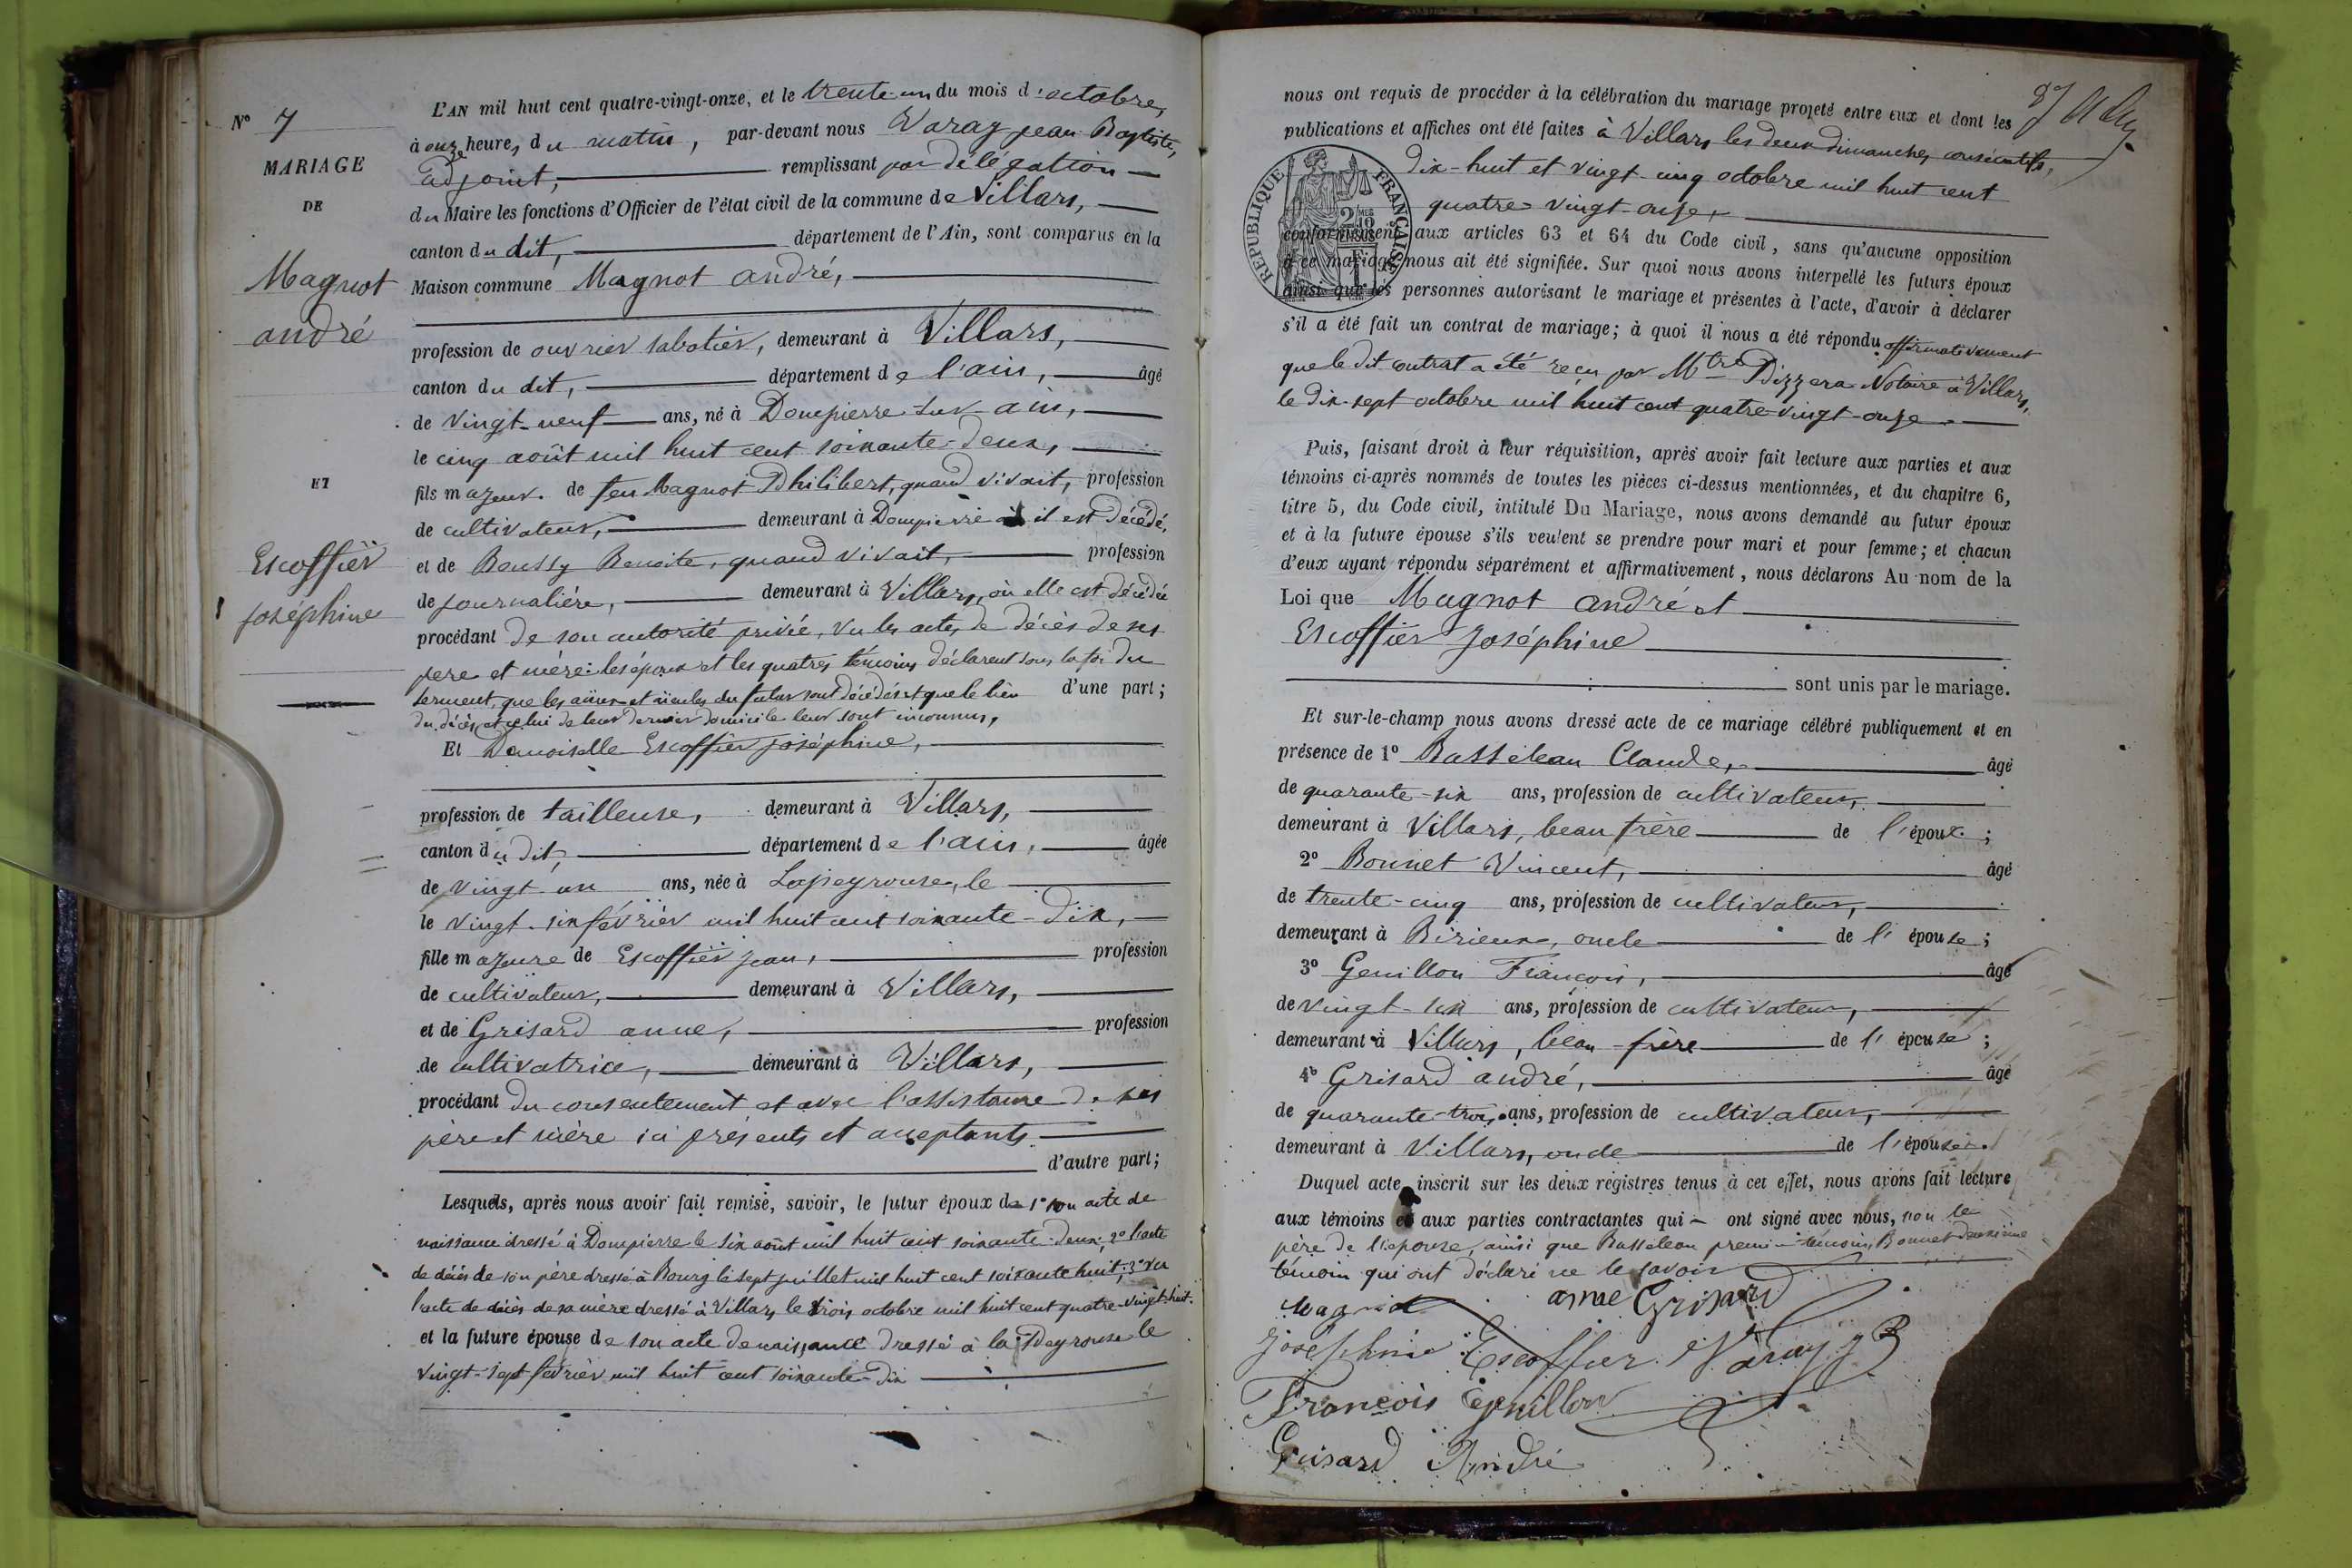 N° 7
MARIAGE
DE
Magnot
andré
ET
Escoffier
Joséphine
L'AN mil huit cent quatre-vingt-onze, et le trente-un du mois d'octobre,
à onze heures du matin, par-devant nous Varay Jean Baptiste,
adjoint, remplissant par délégation
du Maire les fonctions d'Officier de l'état civil de la commune de Villars,
canton du dit, département de l'Ain, sont comparus en la
Maison commune Magnot andré,
profession de ouvrier sabotier, demeurant à Villars,
canton du dit, département de l'ain, âgé
de vingt-neuf ans, né à Dompierre-sur-ain,
le cinq août mil huit cent soixante-deux,
fils majeur de feu Magnot Philibert, quand vivait, profession
de cultivateur, demeurant à Dompierre où il est décédé,
et de Boussy Benoite, quand vivait, profession
de journalière, demeurant à Villars, où elle est décédée
procédant de son autorité privée, vu les actes de décès de ses
père et mère: les époux et les quatres témoins déclarent sous la foi du
serment, que les aïeux et aïeules du futur sont décédés et que le lieu d'une part;
du décès et celui de leur dernier domicile leur sont inconnus,
Et Demoiselle Escoffier Joséphine,
profession de tailleuse, demeurant à Villars,
canton du dit, département de l'ain, âgée
de vingt-un ans, née à Lapeyrouse, le
le vingt-six février mil huit cent soixante-dix,
fille majeure de Escoffier Jean, profession
de cultivateur, demeurant à Villars,
et de Grisard anne, profession
de cultivatrice, demeurant à Villars,
procédant du consentement et avec l'assistance de ses
père et mère ici présents et acceptants
d'autre part;
Lesquels, après nous avoir fait remise, savoir, le futur époux de 1° son acte de
naissance dressé à Dompierre le six août mil huit cent soixante-deux; 2° l'acte
de décès de son père dressé à Bourg le sept juillet mil huit cent soixante huit; 3° vu
l'acte de décès de sa mère dressé à Villars le trois octobre mil huit cent quatre-vingt-huit.
et la future épouse de son acte de naissance dressé à la Peyrouse le
vingt-sept février mil huit cent soixante-dix
nous ont requis de procéder à la célébration du mariage projeté entre eux et dont les
publications et affiches ont été faites à Villars les deux dimanches consécutifs,
dix-huit et vingt-cinq octobre mil huit cent
quatre-vingt-onze,
RÉPUBLIQUE FRANÇAISE
conformément aux articles 63 et 64 du Code civil, sans qu'aucune opposition
à ce mariage nous ait été signifiée. Sur quoi nous avons interpellé les futurs époux
ainsi que les personnes autorisant le mariage et présentes à l'acte, d'avoir à déclarer
s'il a été fait un contrat de mariage; à quoi il nous a été répondu affirmativement
que le dit contrat a été reçu par Mtre Pizzera Notaire à Villars,
le dix-sept octobre mil huit cent quatre-vingt-onze
Puis, faisant droit à leur réquisition, après avoir fait lecture aux parties et aux
témoins ci-après nommés de toutes les pièces ci-dessus mentionnées, et du chapitre 6,
titre 5, du Code civil, intitulé Du Mariage, nous avons demandé au futur époux
et à la future épouse s'ils veulent se prendre pour mari et pour femme; et chacun
d'eux ayant répondu séparément et affirmativement, nous déclarons Au nom de la
Loi que Magnot andré et
Escoffier Joséphine
sont unis par le mariage.
Et sur-le-champ nous avons dressé acte de ce mariage célébré publiquement et en
présence de 1° Basseleau Claude, âgé
de quarante-six ans, profession de cultivateur,
demeurant à Villars, beau frère de l'époux;
2° Bonnet Vincent, âgé
de trente-cinq ans, profession de cultivateur,
demeurant à Birieux, oncle de l'épouse;
3° Genillon François, âgé
de vingt-six ans, profession de cultivateur,
demeurant à Villars, beau-frère de l'épouse;
4° Grisard andré, âgé
de quarante-trois ans, profession de cultivateur,
demeurant à Villars, oncle de l'épouse.
Duquel acte inscrit sur les deux registres tenus à cet effet, nous avons fait lecture
aux témoins et aux parties contractantes qui ont signé avec nous, non le
père de l'épouse, ainsi que Basseleau premier témoin, Bonnet deuxième
témoin qui ont déclaré ne le savoir
Magnot anne Grisard
Joséphine Escoffier Varay J B
François Genillon
Grisard André